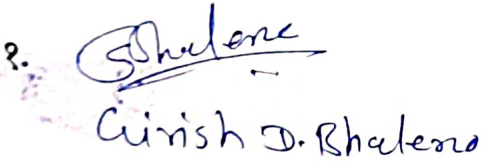 2. GBhalerao
Girish D. Bhalerao